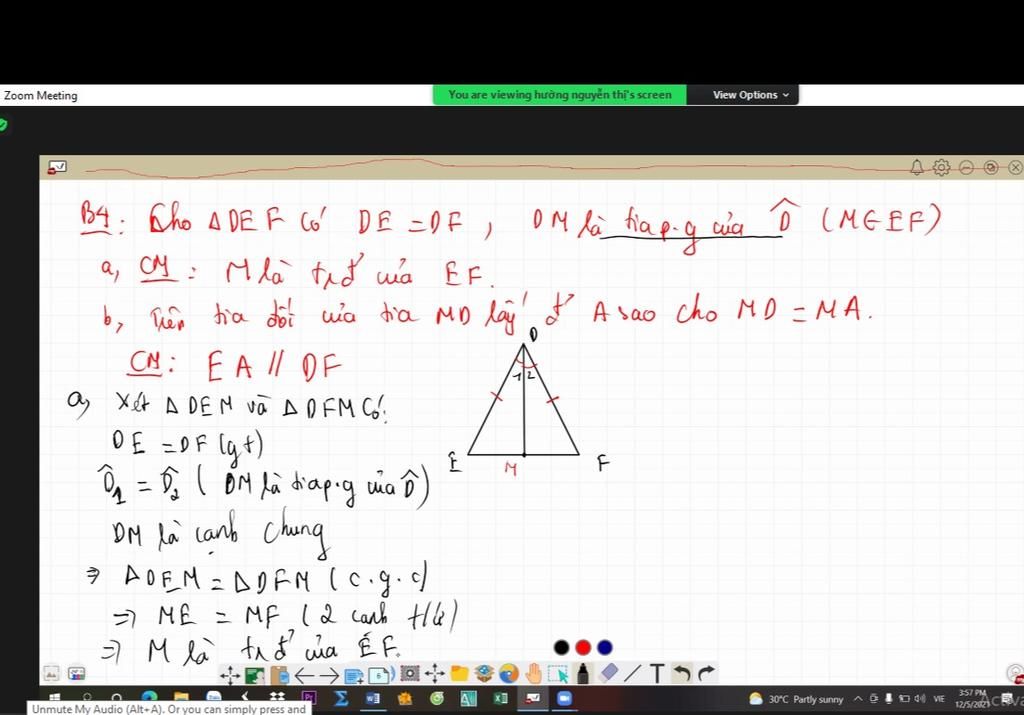 Zoom Meeting
You are viewing hường nguyễn thị's screen
View Options
B4: Cho ΔDEF có DE = DF, DM là tia p.g của D̂ (M∈EF)
a, CM: M là trđ' của EF.
b, Trên tia đối của tia MD lấy đ' A sao cho MD = MA.
CM: EA // DF
D
1 2
E M F
a, Xét ΔDEM và ΔDFM có:
DE = DF (gt)
D̂1 = D̂2 ( DM là tia p.g của D̂)
DM là cạnh chung
⇒ ΔDEM = ΔDFM (c.g.c)
⇒ ME = MF (2 cạnh t/ứ)
⇒ M là trđ' của EF.
30°C Partly sunny
VIE
3:57 PM
12/5/2021
Unmute My Audio (Alt+A). Or you can simply press and